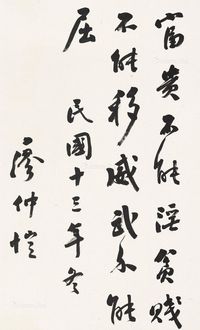 富贵不能淫貧賤
不能移威武不能
屈
民國十三年冬
廖仲愷